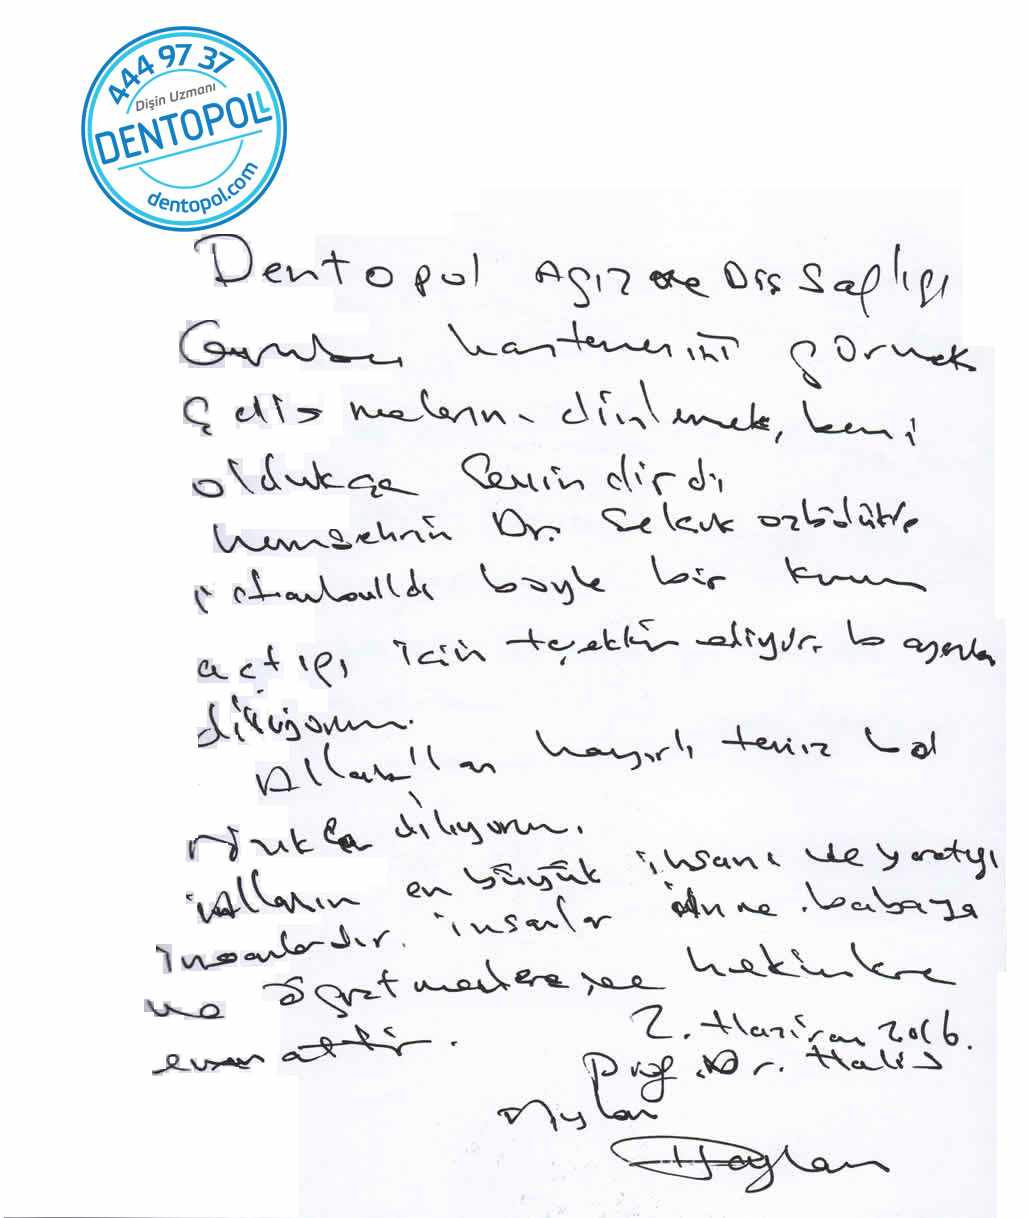 444 97 37
Dişin Uzmanı
DENTOPOLL
dentopol.com
Dentopol Ağız ve Diş Sağlığı
Gurubu hastanesini görmek
çalışmalarını dinlemek, beni
oldukça sevindirdi
hemşehrim Dr. Selçuk
istanbulda böyle bir kurum
açtığı için teşekkür ediyor, başarılar
diliyorum.
Allah'tan hayırlı temiz bol
rızıklar diliyorum.
Allahın en büyük ihsanı ve yarattığı
insanlardır. insanlar Anne babaya
ve öğretmenlere, ve hekimlere
emanettir.
2. Haziran 2016.
Prof. Dr. Halis
Aylan